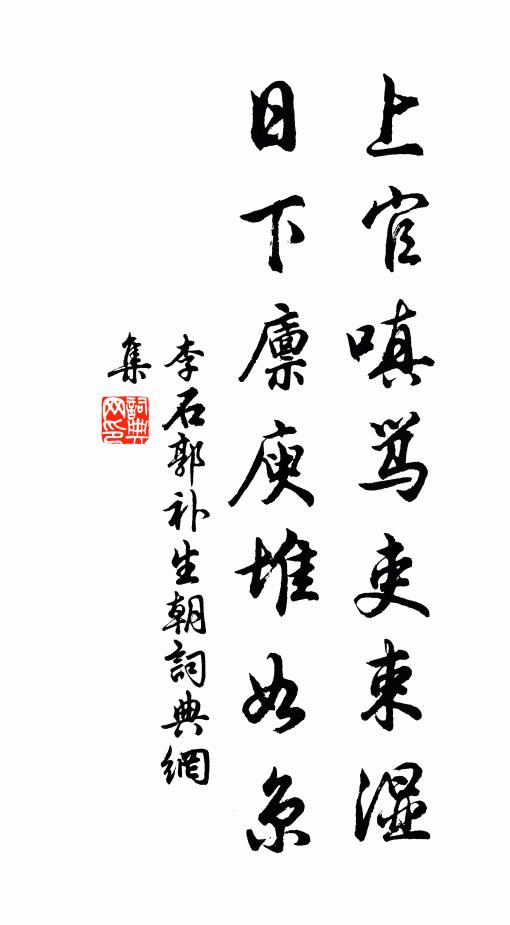 上官嗔骂吏束湿
日下廪庾堆如京
李石郭补生朝詞典網
集
詞典网印